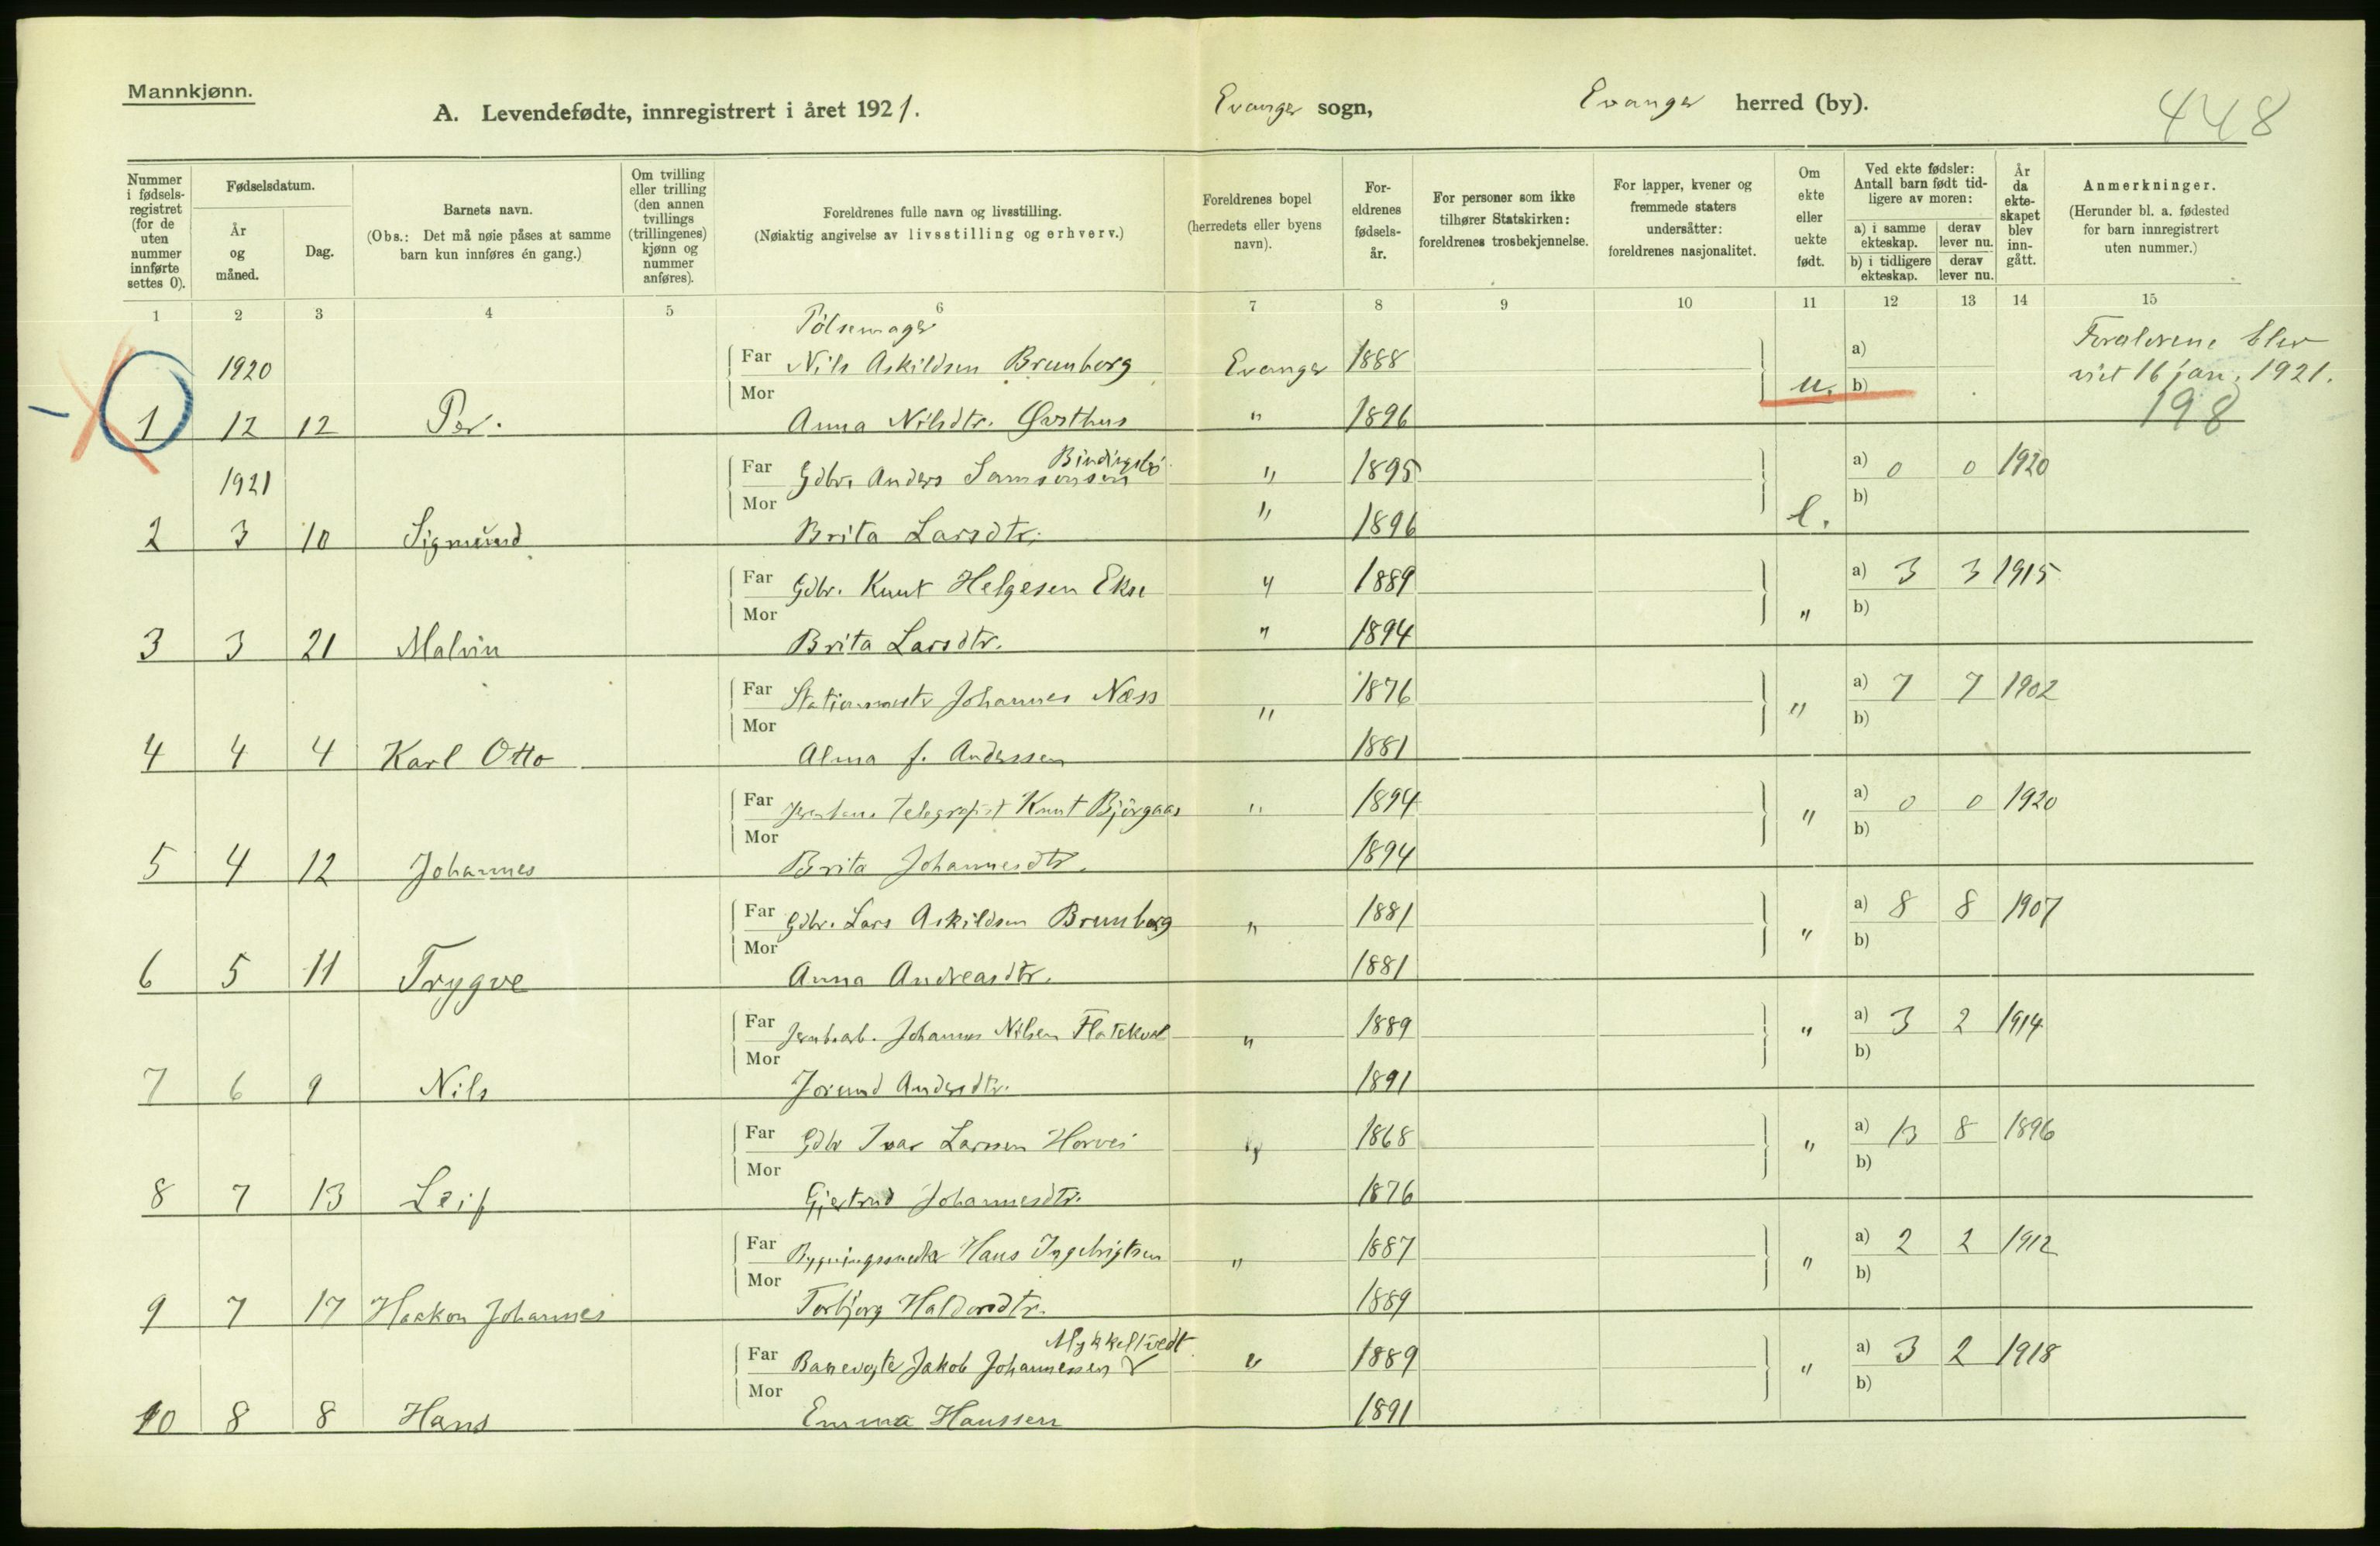 Mannkjønn.
A. Levendefødte, innregistrert i året 1921.
Evanger sogn,
Evanger herred (by).
448
Nummer i fødsels-registret (for de uten nummer innførte settes 0).
Fødselsdatum.
År og måned.
Dag.
Barnets navn.
(Obs.: Det må nøie påses at samme barn kun innføres én gang.)
Om tvilling eller trilling (den annen tvillings (trillingenes) kjønn og nummer anføres).
Foreldrenes fulle navn og livsstilling.
(Nøiaktig angivelse av livsstilling og erhverv.)
Foreldrenes bopel (herredets eller byens navn).
For-eldrenes fødsels-år.
For personer som ikke tilhører Statskirken: foreldrenes trosbekjennelse.
For lapper, kvener og fremmede staters undersåtter: foreldrenes nasjonalitet.
Om ekte eller uekte født.
Ved ekte fødsler: Antall barn født tid-ligere av moren:
a) i samme ekteskap.
derav lever nu.
b) i tidligere ekteskap.
derav lever nu.
År da ekte-skapet blev inn-gått.
Anmerkninger.
(Herunder bl. a. fødested for barn innregistrert uten nummer.)
1 2 3 4 5 6 7 8 9 10 11 12 13 14 15
Pølsemager
1920 Far Nils Askildsen Brunborg Evanger 1888 a) Forældrene blev
viet 16 jan. 1921.
1 12 12 Per. Mor Anna Nilsdtr. Øvsthus " 1896 u. b) 198
Bindingsbø
1921 Far Gdbr. Anders Samsonsen " 1895 a) 0 0 1920
2 3 10 Sigmund Mor Brita Larsdtr. " 1896 e. b)
Far Gdbr. Knut Helgesen Ekse " 1889 a) 3 3 1915
3 3 21 Malvin Mor Brita Larsdtr. " 1894 " b)
Far Stationsmester Johannes Næss " 1876 a) 7 7 1902
4 4 4 Karl Otto Mor Alma f. Anderssen 1881 " b)
Far Jernbane telegrafist Knut Bjørgaas " 1894 a) 0 0 1920
5 4 12 Johannes Mor Brita Johannesdtr. 1894 " b)
Far Gdbr. Lars Askildsen Brunborg " 1881 a) 8 8 1907
6 5 11 Trygve Mor Anna Andreasdtr. 1881 " b)
Far Jernb.arb. Johannes Nilsen Flatekval " 1889 a) 3 2 1914
7 6 9 Nils Mor Jorund Andersdtr. 1891 " b)
Far Gdbr Ivar Larsen Horvei " 1868 a) 13 8 1896
8 7 13 Leif Mor Gjertrud Johannesdtr. 1876 " b)
Far Bygningssnedker Hans Ingebrigtsen " 1887 a) 2 2 1912
9 7 17 Haakon Johannes Mor Torbjørg Haldorsdtr. 1889 " b)
Mykkeltvedt
Far Banevogter Jakob Johannessen " 1889 a) 3 2 1918
10 8 8 Hans Mor Emma Hanssen 1891 " b)